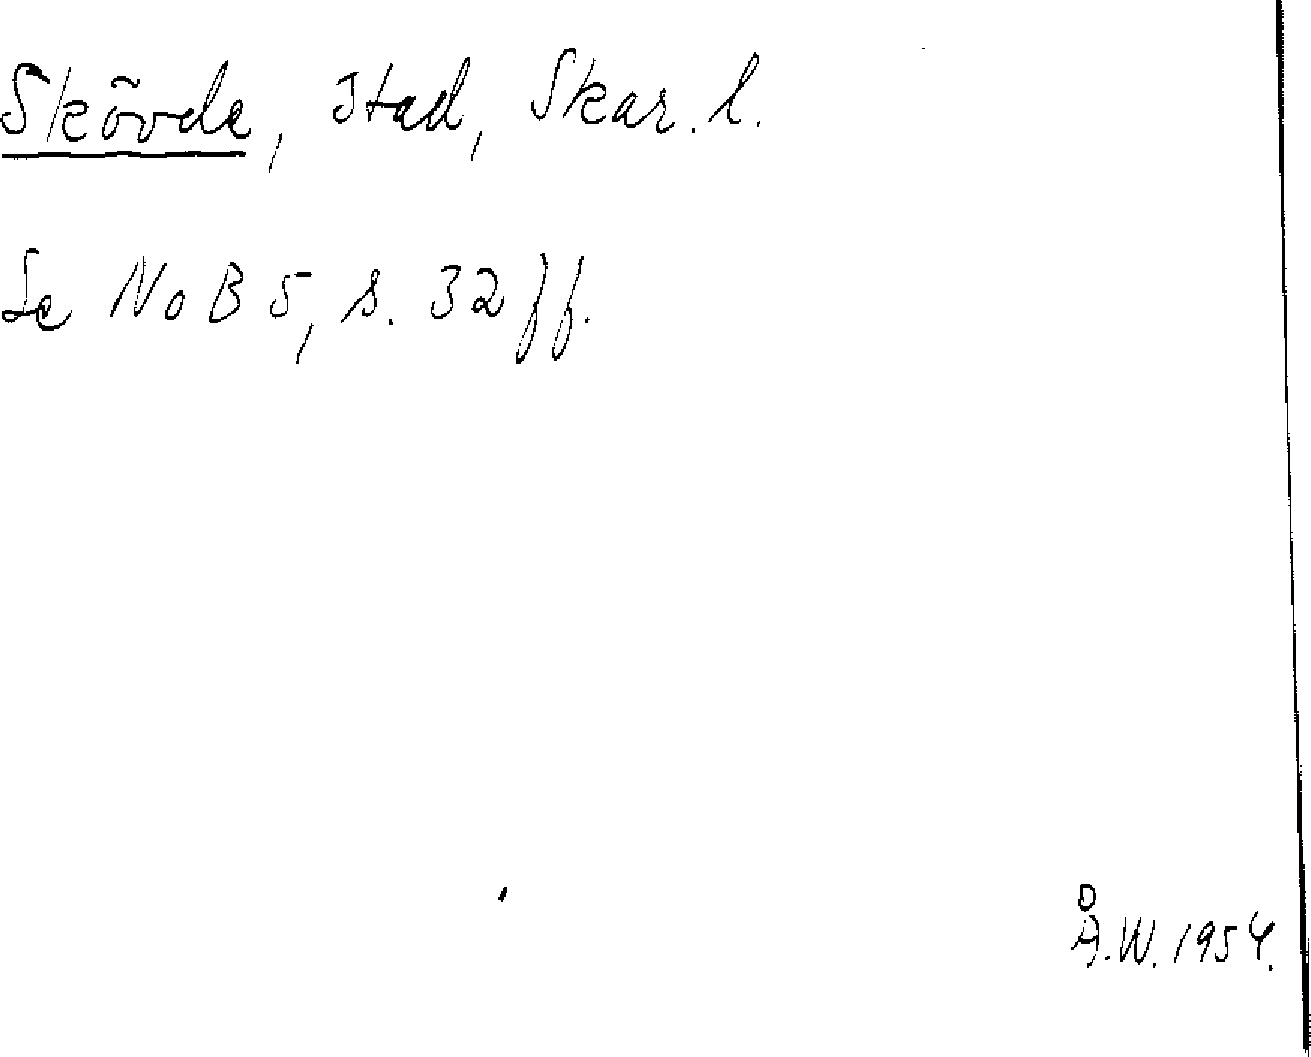 Skövde, stad, Skar. l.
Se NoB 5, s. 32 ff.
Å.W. 1954.